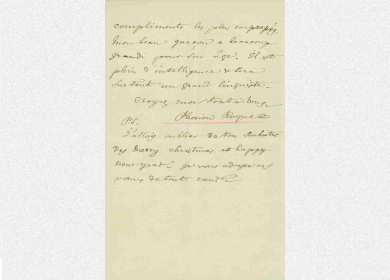 compliments les plus empressés,
Mon beau garçon a beaucoup
grandi pour son âge. Il est
plein d'intelligence & sera
surtout un grand linguiste.
Croyez moi tout à vous
PS.
J'allais oublier de vous souhaiter
des merry christmas et happy
new year! je vous adresse ces
vœux de tout cœur!